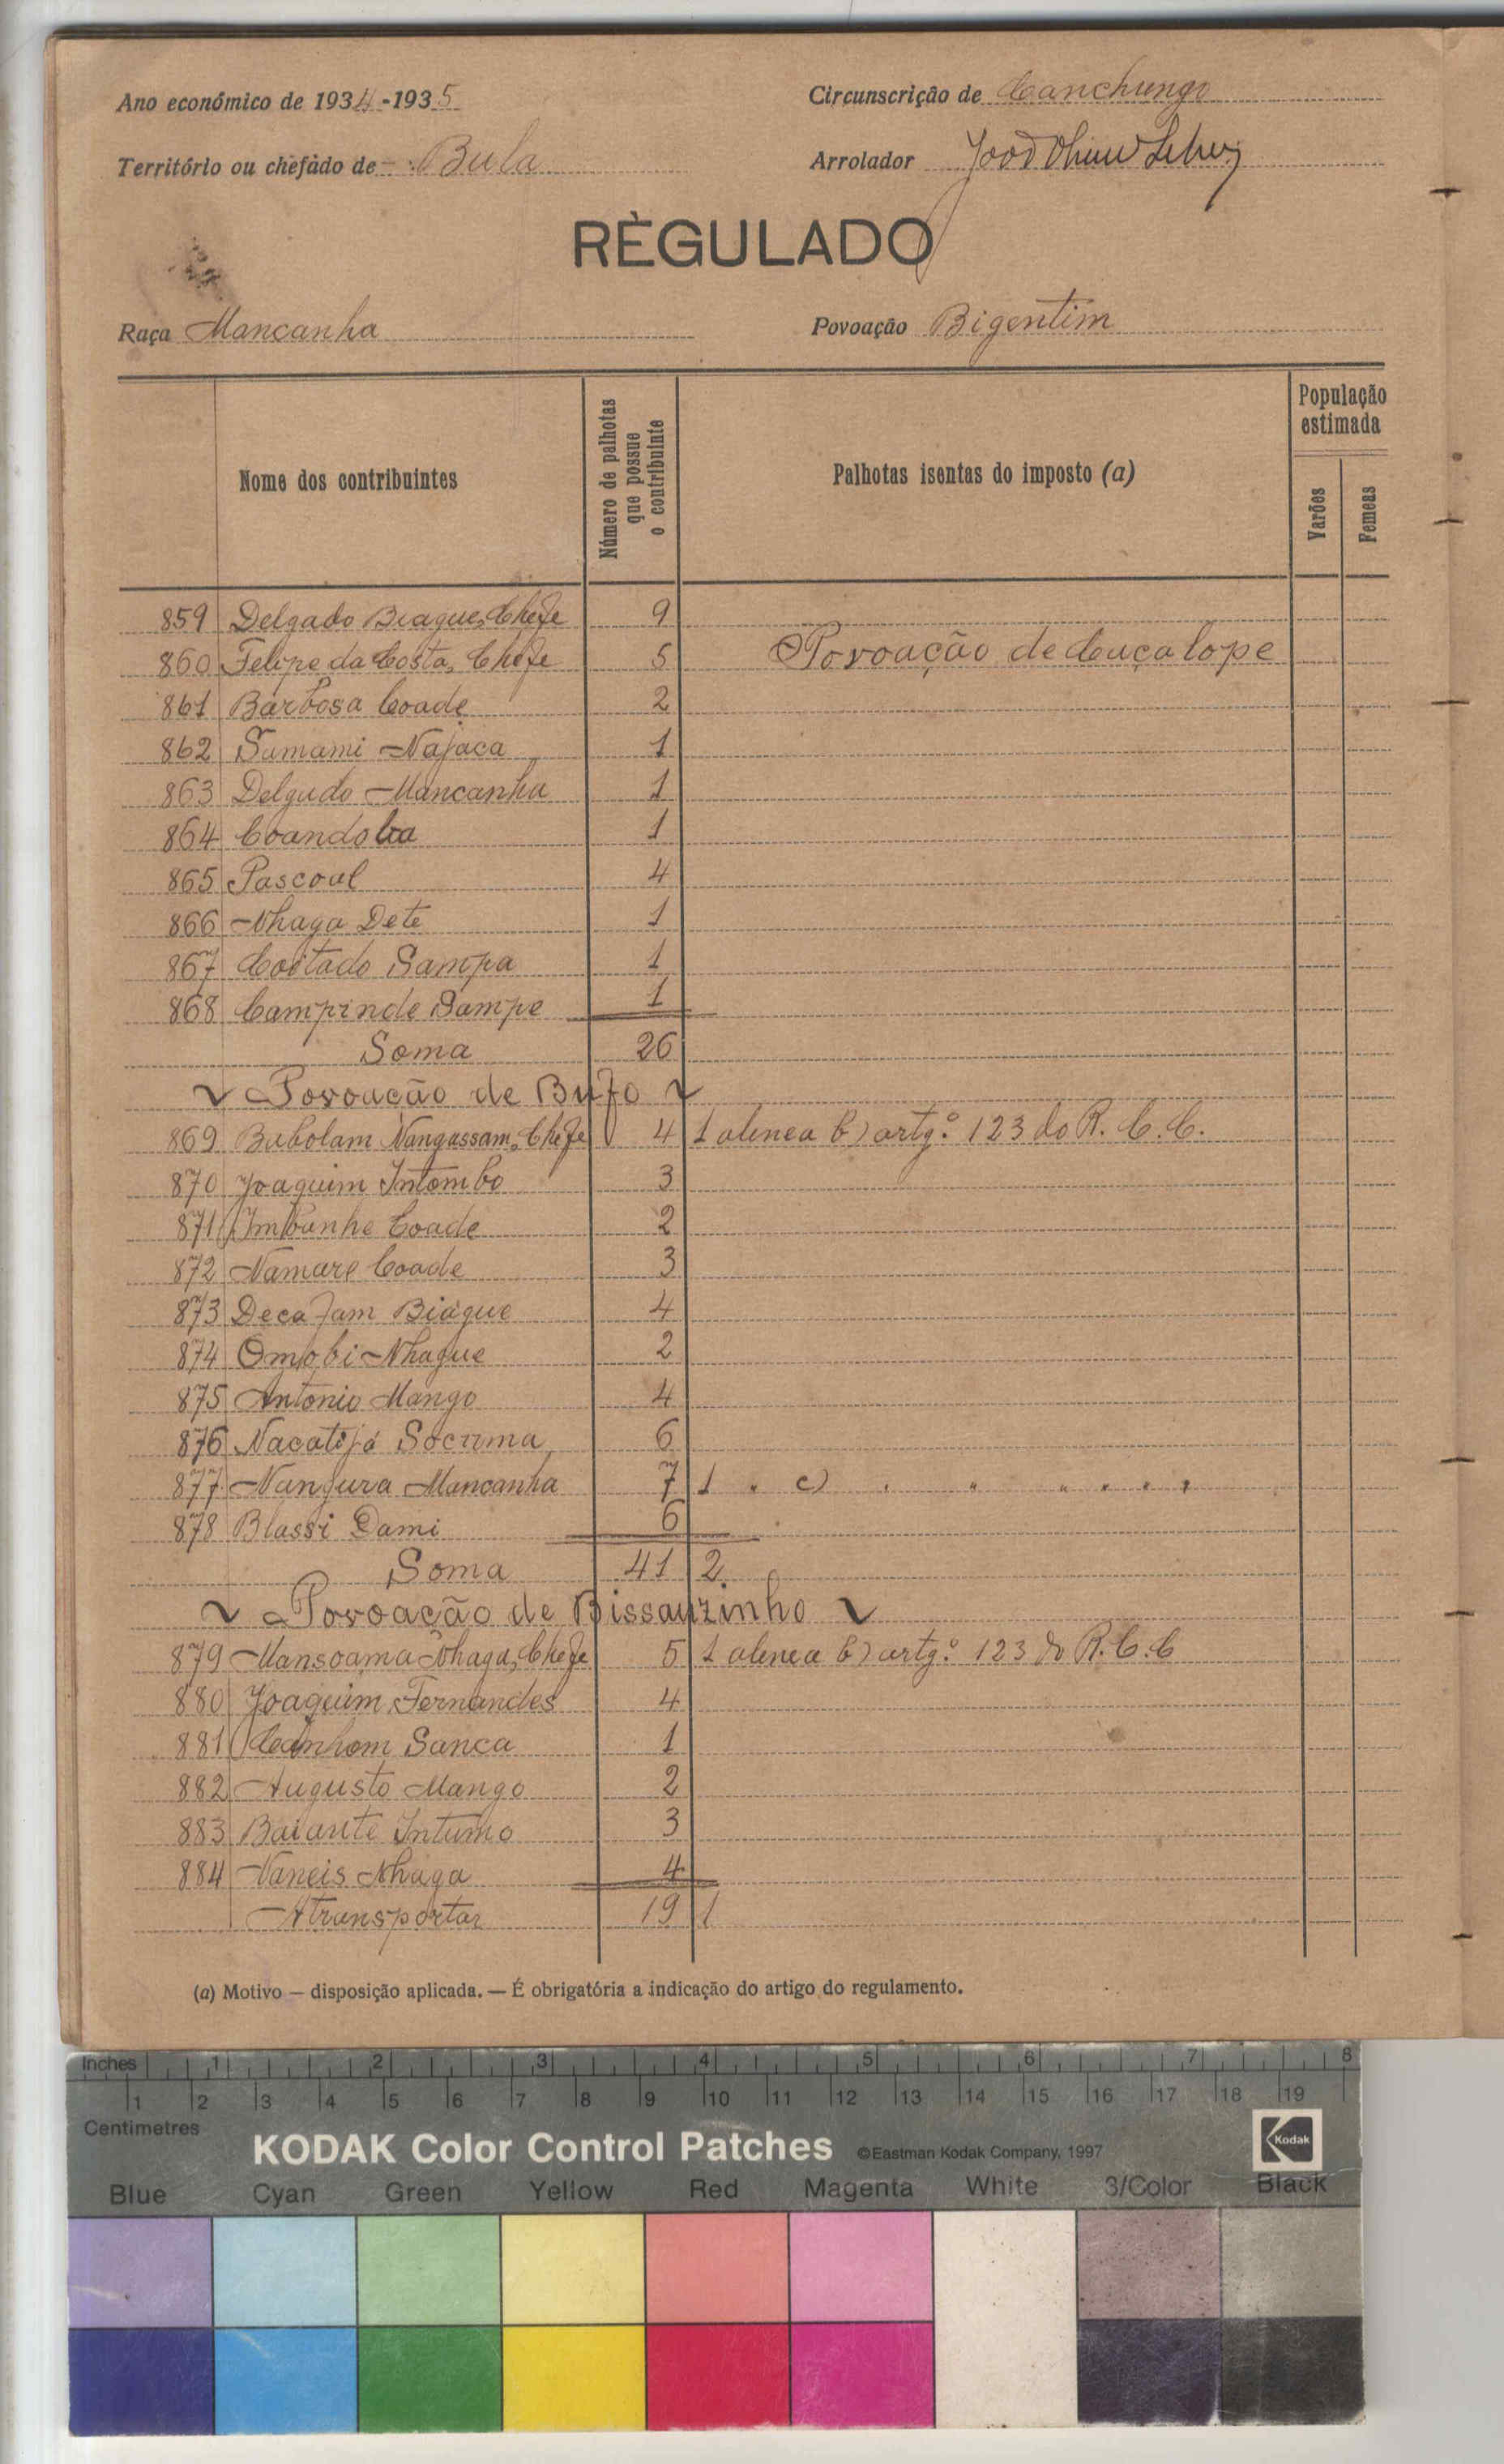 Ano económico de 1934-1935
Circunscrição de Canchungo
Território ou chefado de Bula
Arrolador João
RÈGULADO
Raça Mancanha
Povoação Bigentim
Nome dos contribuintes
Número de palhotas que possue o contribuinte
Palhotas isentas do imposto (a)
População estimada
Varões
Femeas
859 Delgado Biague, Chefe 9
860 Felipe da Costa, Chefe 5 Povoação de Cuçalope
861 Barbosa Coade 2
862 Samami Najaca 1
863 Delgado Mancanha 1
864 1
865 Pascoal 4
866 Nhaga Dete 1
867 Coitado Sampa 1
868 Campinde Sampe 1
Soma 26
Povoação de Bufo
869 Bubolam Nangassam, Chefe 4 1 alinea b) artg.º 123 do R. C. C.
870 Joaquim Intombo 3
871 Imbunhe Coade 2
872 Namare Coade 3
873 Decafam Biague 4
874 Omobi Nhague 2
875 Antonio Mango 4
876 Nacatijá Socuma 6
877 Nanjura Mancanha 7 1 " c) " " " " " "
878 Blassi Dami 6
Soma 41 2
Povoação de Bissauzinho
879 Mansoama Nhaga, Chefe 5 1 alinea b) artg.º 123 do R. C. C
880 Joaquim Fernandes 4
881 Canhom Sanca 1
882 Augusto Mango 2
883 Baiante Intumo 3
884 Naneis Nhaga 4
A transportar 19 1
(a) Motivo — disposição aplicada. — É obrigatória a indicação do artigo do regulamento.
Inches 1 2 3 4 5 6 7 8
1 2 3 4 5 6 7 8 9 10 11 12 13 14 15 16 17 18 19
Centimetres
KODAK Color Control Patches ©Eastman Kodak Company, 1997 Kodak
Blue Cyan Green Yellow Red Magenta White 3/Color Black